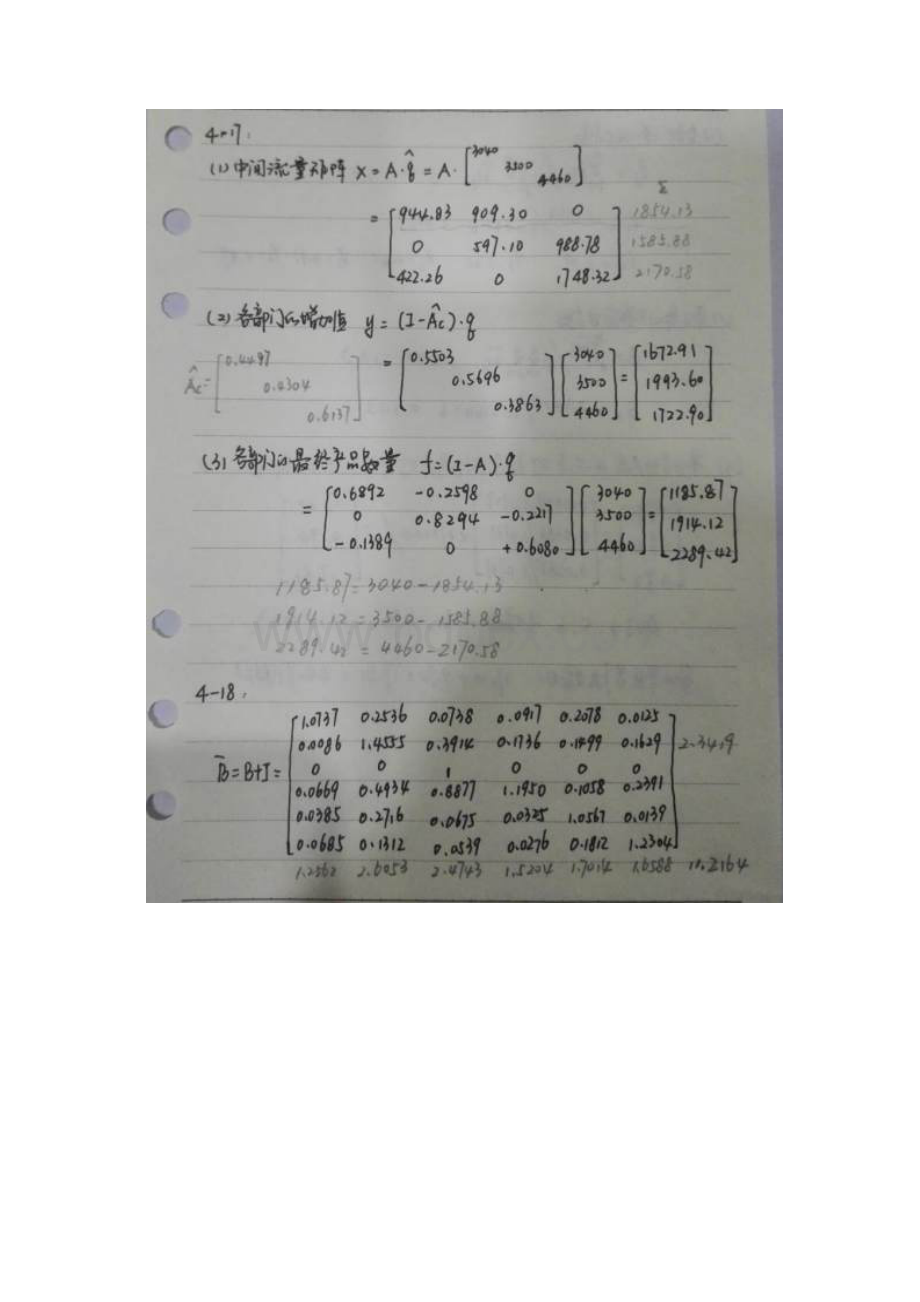 4-17:
(1) 中间流量矩阵 X = A·q̂ = A· [3040 3500 4460]
Σ
= [944.83 909.30 0] 1854.13
[0 597.10 988.78] 1585.88
[422.26 0 1748.32] 2170.58
(2) 各部门的增加值 y = (I-Âc)·q
Âc = [0.4497 0.4304 0.6137]
= [0.5503 0.5696 0.3863] [3040 3500 4460] = [1672.91 1993.60 1722.90]
(3) 各部门的最终产品数量 f = (I-A)·q
= [0.6892 -0.2598 0] [3040] = [1185.87]
[0 0.8294 -0.2217] [3500] [1914.12]
[-0.1389 0 +0.6080] [4460] [2289.42]
1185.87 = 3040-1854.13
1914.12 = 3500-1585.88
2289.42 = 4460-2170.58
4-18:
B̄=B+I=
1.0737 0.2536 0.0738 0.0917 0.2078 0.0125
0.0086 1.4555 0.3914 0.1736 0.1499 0.1629 2.3419
0 0 1 0 0 0
0.0669 0.4934 0.8877 1.1950 0.1058 0.2391
0.0385 0.2716 0.0675 0.0325 1.0567 0.0139
0.0685 0.1312 0.0539 0.0276 0.1812 1.2304
1.2562 2.6053 2.4743 1.5204 1.7014 1.6588 11.2164